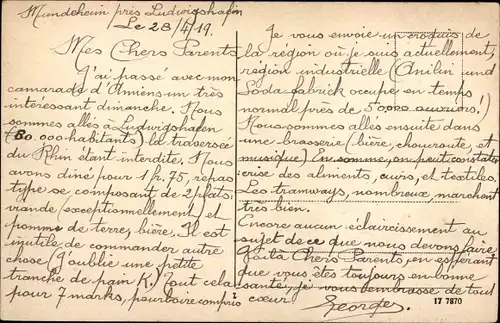 Mundeheim près Ludwigshafen
Le 28/4/19.
Mes Chers Parents
J'ai passé avec mon
camarade d'Amiens un très
intéressant dimanche. Nous
sommes allés à Ludwigshafen
(80.000 habitants) la traversée
du Rhin étant interdite. Nous
avons dîné pour 1 fr. 75, repas
type se composant de 2 plats,
viande (exceptionnellement) et
pomme de terre, bière. Il est
inutile de commander autre
chose (J'oublie une petite
tranche de pain K.) Tout cela
pour 7 marks, pourboire compris
Je vous envoie un croquis de
la région où je suis actuellement,
région industrielle (Anilin und
Sodafabrick occupe en temps
normal près de 50000 ouvriers!)
Nous sommes allés ensuite dans
une brasserie (bière, choucroute, et
musique) En somme, on peut constater
crise des aliments, cuirs, et textiles.
Les tramways, nombreux, marchent
très bien.
Encore aucun éclaircissement au
sujet de ce que nous devons faire
Voilà Chers Parents, en espérant
que vous êtes toujours en bonne
santé, je vous embrasse de tout
cœur.
Georges
17 7870